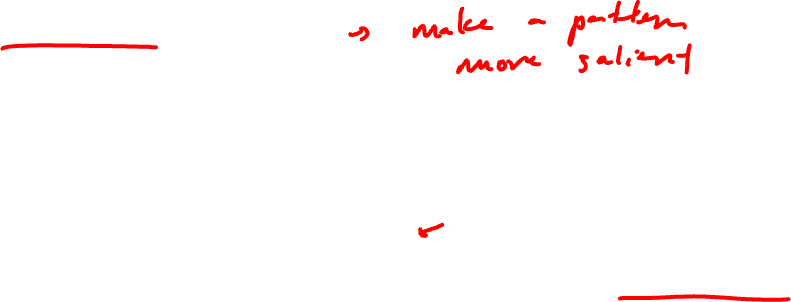 → make a pattern
more salient